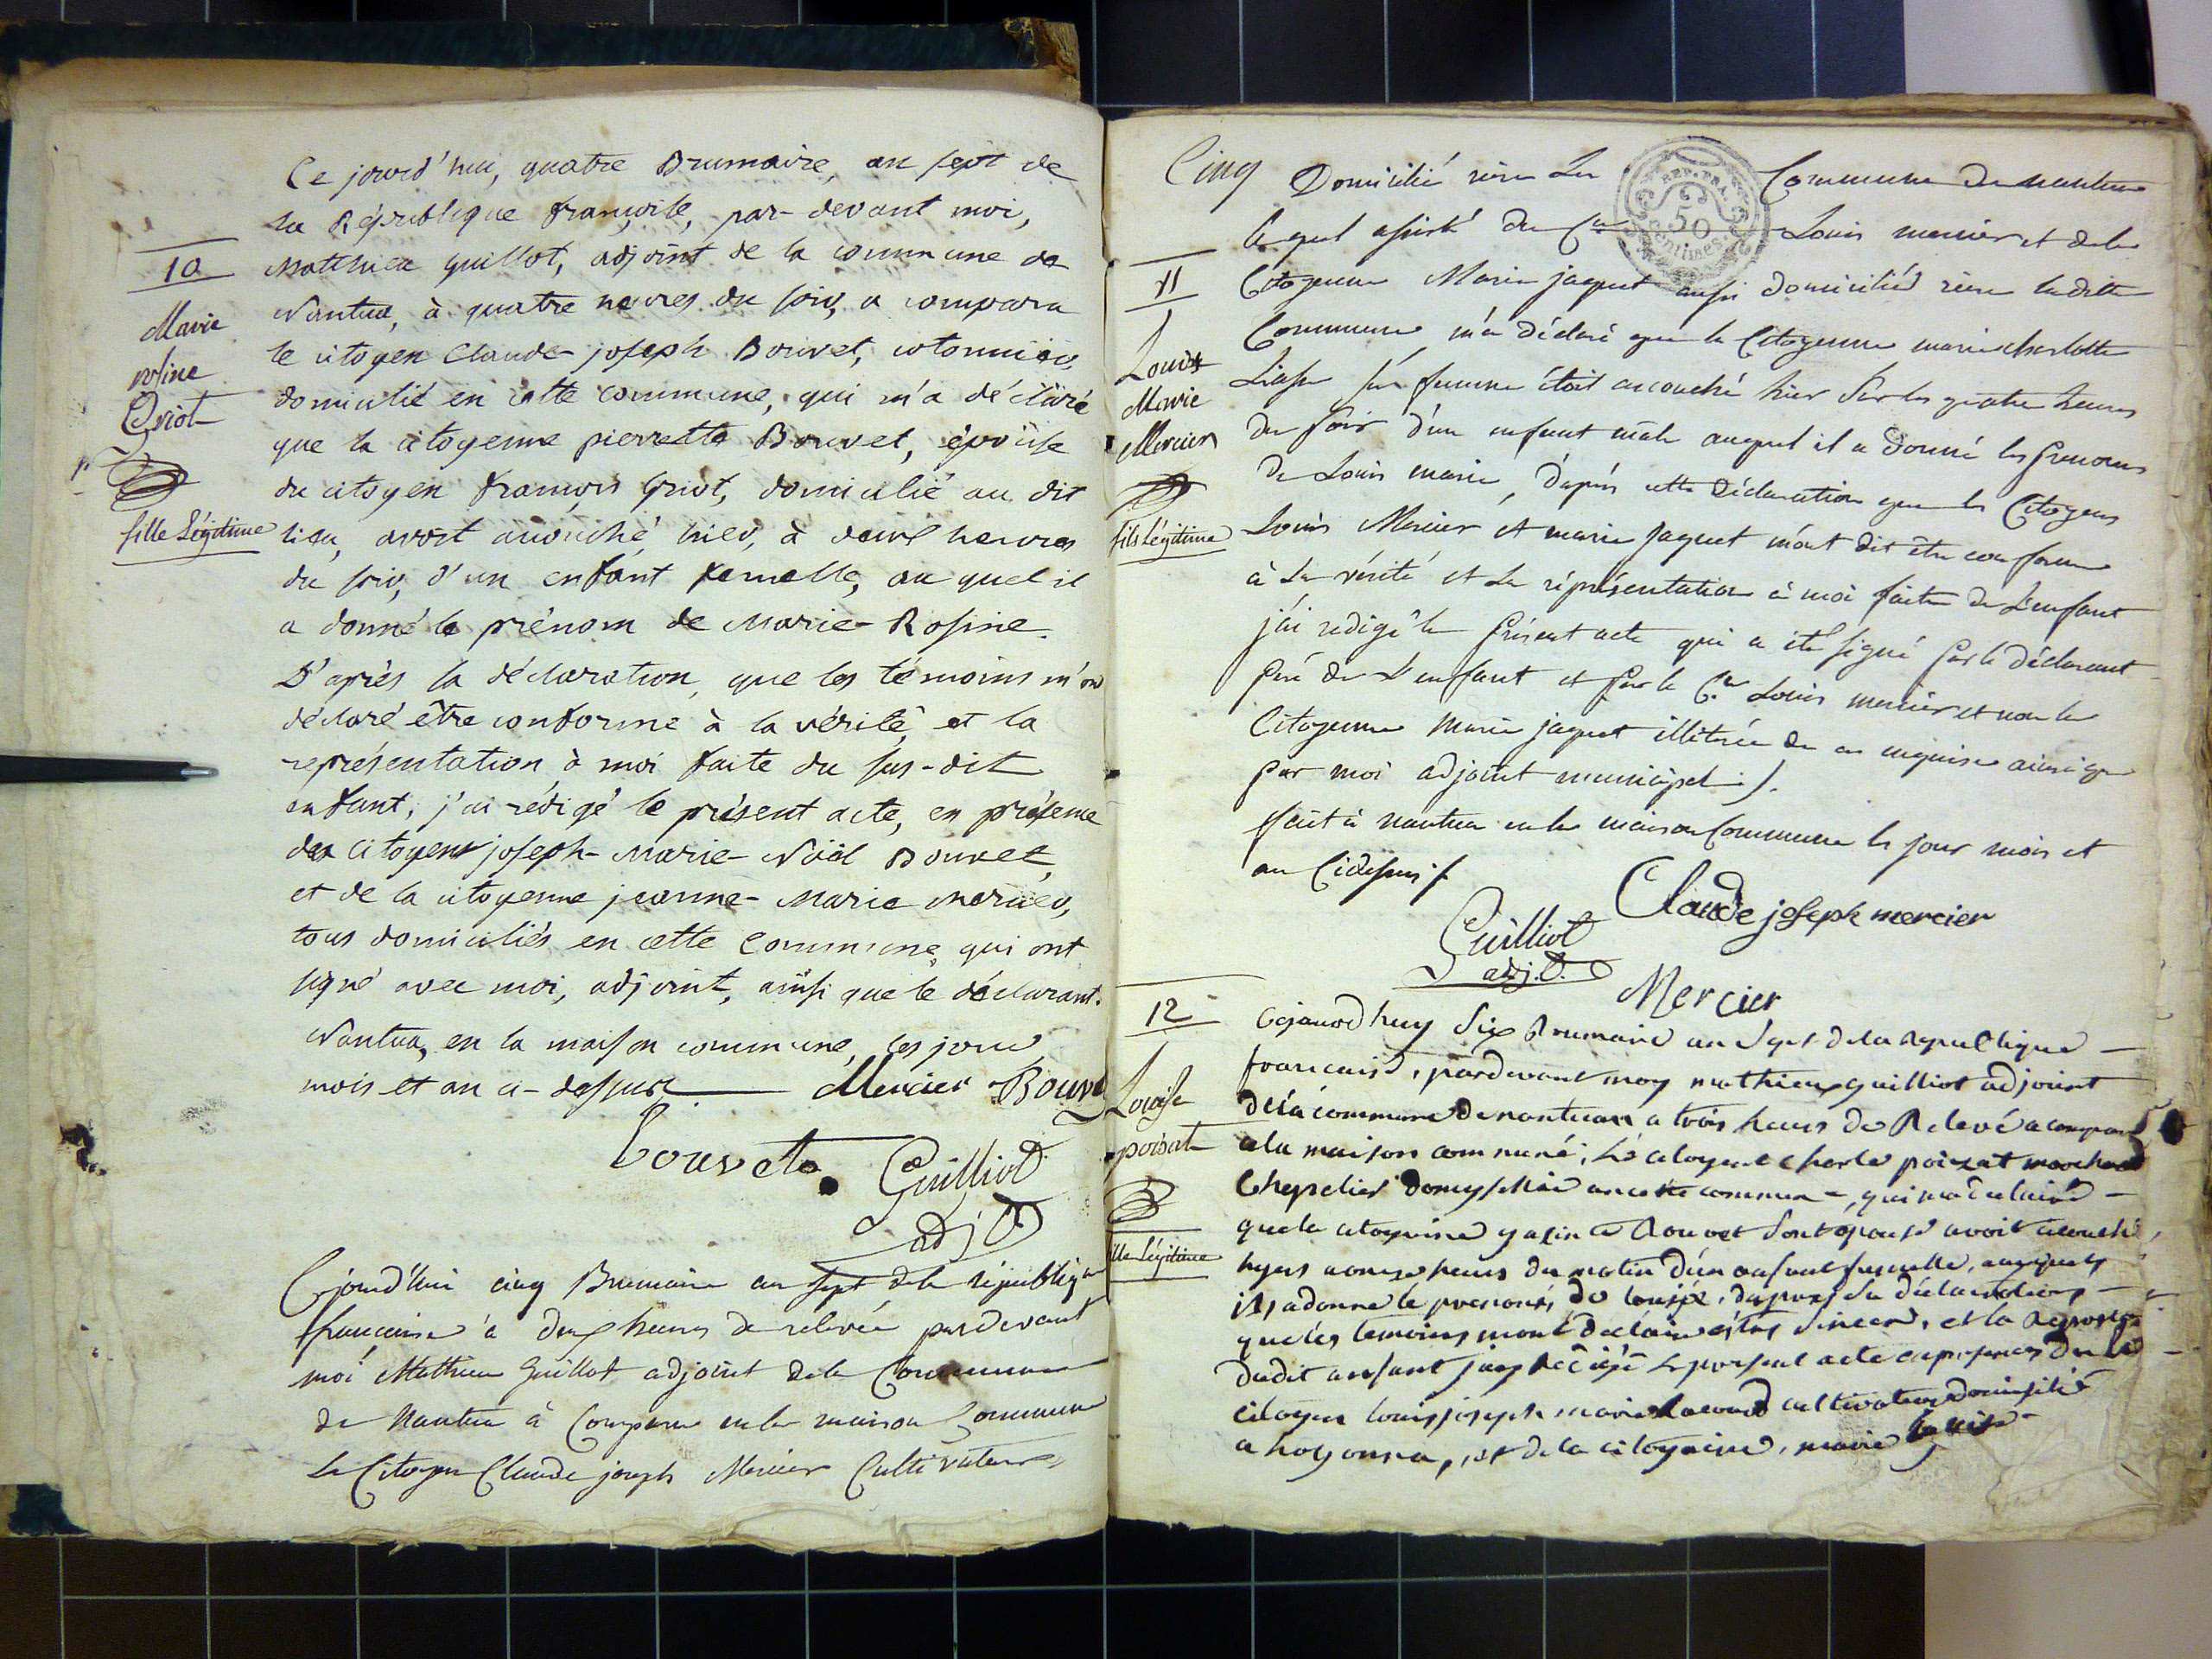 Ce jourd'hui, quatre Brumaire, an sept de
la République française, par-devant moi,
10
Matthieu Guillot, adjoint de la commune de
Nantua, à quatre heures du soir, a comparu
Marie
rosine
Griot
fille légitime
le citoyen Claude joseph Bouvet, cotonnier,
domicilié en cette commune, qui m'a déclaré
que la citoyenne pierrette Bouvet, épouse
du citoyen françois Griot, domicilié au dit
lieu, avoit accouché hier, à deux heures
du soir, d'un enfant femelle, au quel il
a donné le prénom de Marie-Rosine.
D'après la déclaration, que les témoins m'ont
déclaré être conforme à la vérité, et la
représentation à moi faite du sus-dit
enfant, j'ai rédigé le présent acte, en présence
des citoyens joseph-Marie-Noël Bouvet,
et de la citoyenne jeanne-Marie Mercier,
tous domiciliés en cette commune, qui ont
signé avec moi, adjoint, ainsi que le déclarant.
Nantua, en la maison commune, les jour
mois et an ci-dessus Mercier Bouvet
Bouvet Guilliot
adjt
Cejourd'hui cinq Brumaire an sept de la république
française à deux heures de relevée pardevant
moi Mathieu Guillot adjoint de la Commune
de Nantua à Comparu en la maison Commune
Le Citoyen Claude joseph Mercier Cultivateur
Cinq
Domicilié rière La Commune de nantua
REP. FRA.
50
Centimes
lequel assisté du Cen Louis mercier et de la
11
Citoyenne Marie jaquet aussi domiciliés rière ladite
Louis
Marie
Mercier
fils légitime
Commune m'a déclaré que la Citoyenne marie charlotte
sa femme était accouché hier Sur les quatre heures
du soir d'un enfant mâle auquel il a donné les prenoms
de Louis marie, d'après cette Déclaration que les Citoyens
Louis Mercier et marie jaquet m'ont dit être conforme
à La vérité et La réprésentation à moi faite de L'enfant
j'ai redigé le présent acte qui a été signé par le déclarant
père de L'enfant et par le Cen Louis mercier et non la
Citoyenne Marie jaquet illitérée de ce enquise ainsi que
par moi adjoint municipal.
fait à nantua en la maison Commune les jour mois et
an Cidessus
Claude joseph mercier
Guilliot
adjt
Mercier
12
Louise
poizat
fille légitime
Cejourdhuy Six Brumaire an Sept dela republique
francaise, pardevant moy mathieu guilliot adjoint
dela commune de nantua a trois heures de Relevé a comparu
ala maison commune, Le citoyen charle poizat marchand
Chapelier domysilié en cette commune, qui ma declairé
que la citoyenne Bouvet Sont epouse avoit acouché
hyers a onze heures du matin d'un enfant femelle, auquels
ils a donné le prenoms de louise, dapres La déclarations
que les temoins mont declairé estre sincere, et la
dudit anfant jay redigé Le present acte en presences du
citoyen louis joseph marie cultivateur domisilié
a hoyonna, et de la citoyenne, marie